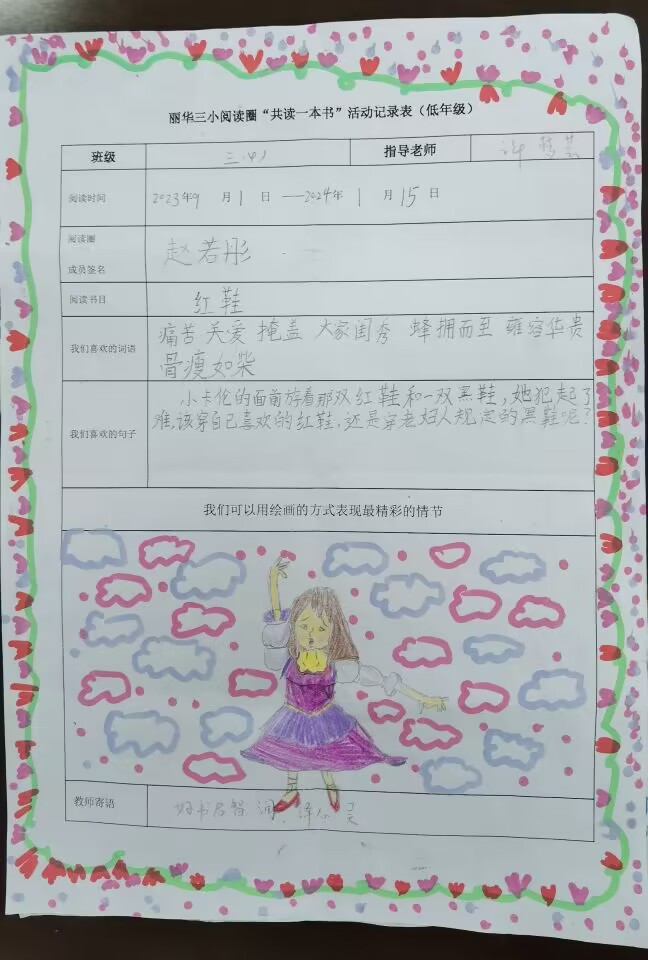 丽华三小阅读圈“共读一本书”活动记录表（低年级）
班级 三.（4） 指导老师 许
阅读时间 2023年9 月1 日 —2024年 1 月15日
阅读圈
成员签名 赵若彤
阅读书目 红鞋
我们喜欢的词语 痛苦 关爱 掩盖 大家闺秀 蜂拥而至 雍容华贵
骨瘦如柴
我们喜欢的句子 小卡伦的面前放着那双红鞋和一双黑鞋，她犯起了
难，该穿自己喜欢的红鞋，还是穿老妇人规定的黑鞋呢？
我们可以用绘画的方式表现最精彩的情节
教师寄语 好书启智